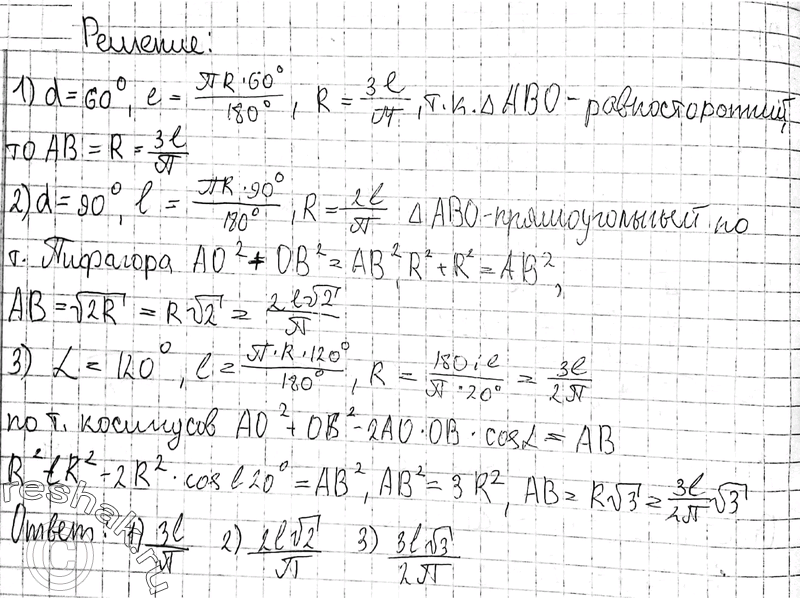 Решение:
1) d = 60°, e = πR·60°/180°, R = 3l/π, т.к. Δ ABO - равносторонний,
то AB = R = 3l/π
2) d = 90°, l = πR·90°/180°, R = 2l/π Δ ABO - прямоугольный по
т. Пифагора AO² + OB² = AB², R² + R² = AB²,
AB = √2R = R√2 = 2l√2/π
3) L = 120°, l = π·R·120°/180°, R = 180·l/π·20° = 3l/2π
по т. косинусов AO² + OB² - 2AO·OB·cosL = AB
R² + R² - 2R²·cos120° = AB², AB² = 3R², AB = R√3 = 3l/2π √3
Ответ: 1) 3l/π 2) 2l√2/π 3) 3l√3/2π
reshak.ru